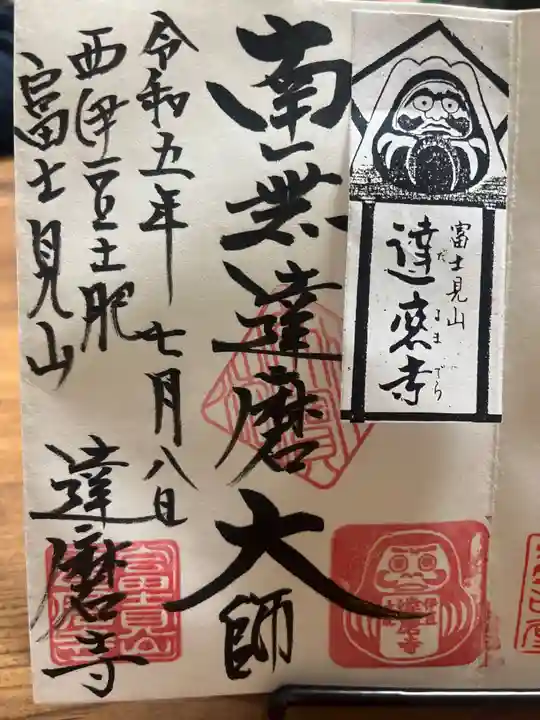 富士見山
達磨寺
だるまでら
南無達磨大師
令和五年七月八日
西伊豆土肥
富士見山
達磨寺
富士見山